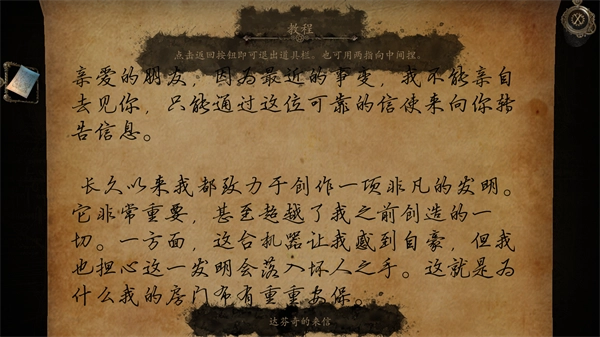 教程
点击返回按钮即可退出道具栏，也可用两指向中间捏。
亲爱的朋友，因为最近的事变，我不能亲自
去见你，只能通过这位可靠的信使来向你转
告信息。
长久以来我都致力于创作一项非凡的发明。
它非常重要，甚至超越了我之前创造的一
切。一方面，这台机器让我感到自豪，但我
也担心这一发明会落入坏人之手。这就是为
什么我的房门布有重重安保。
达芬奇的来信